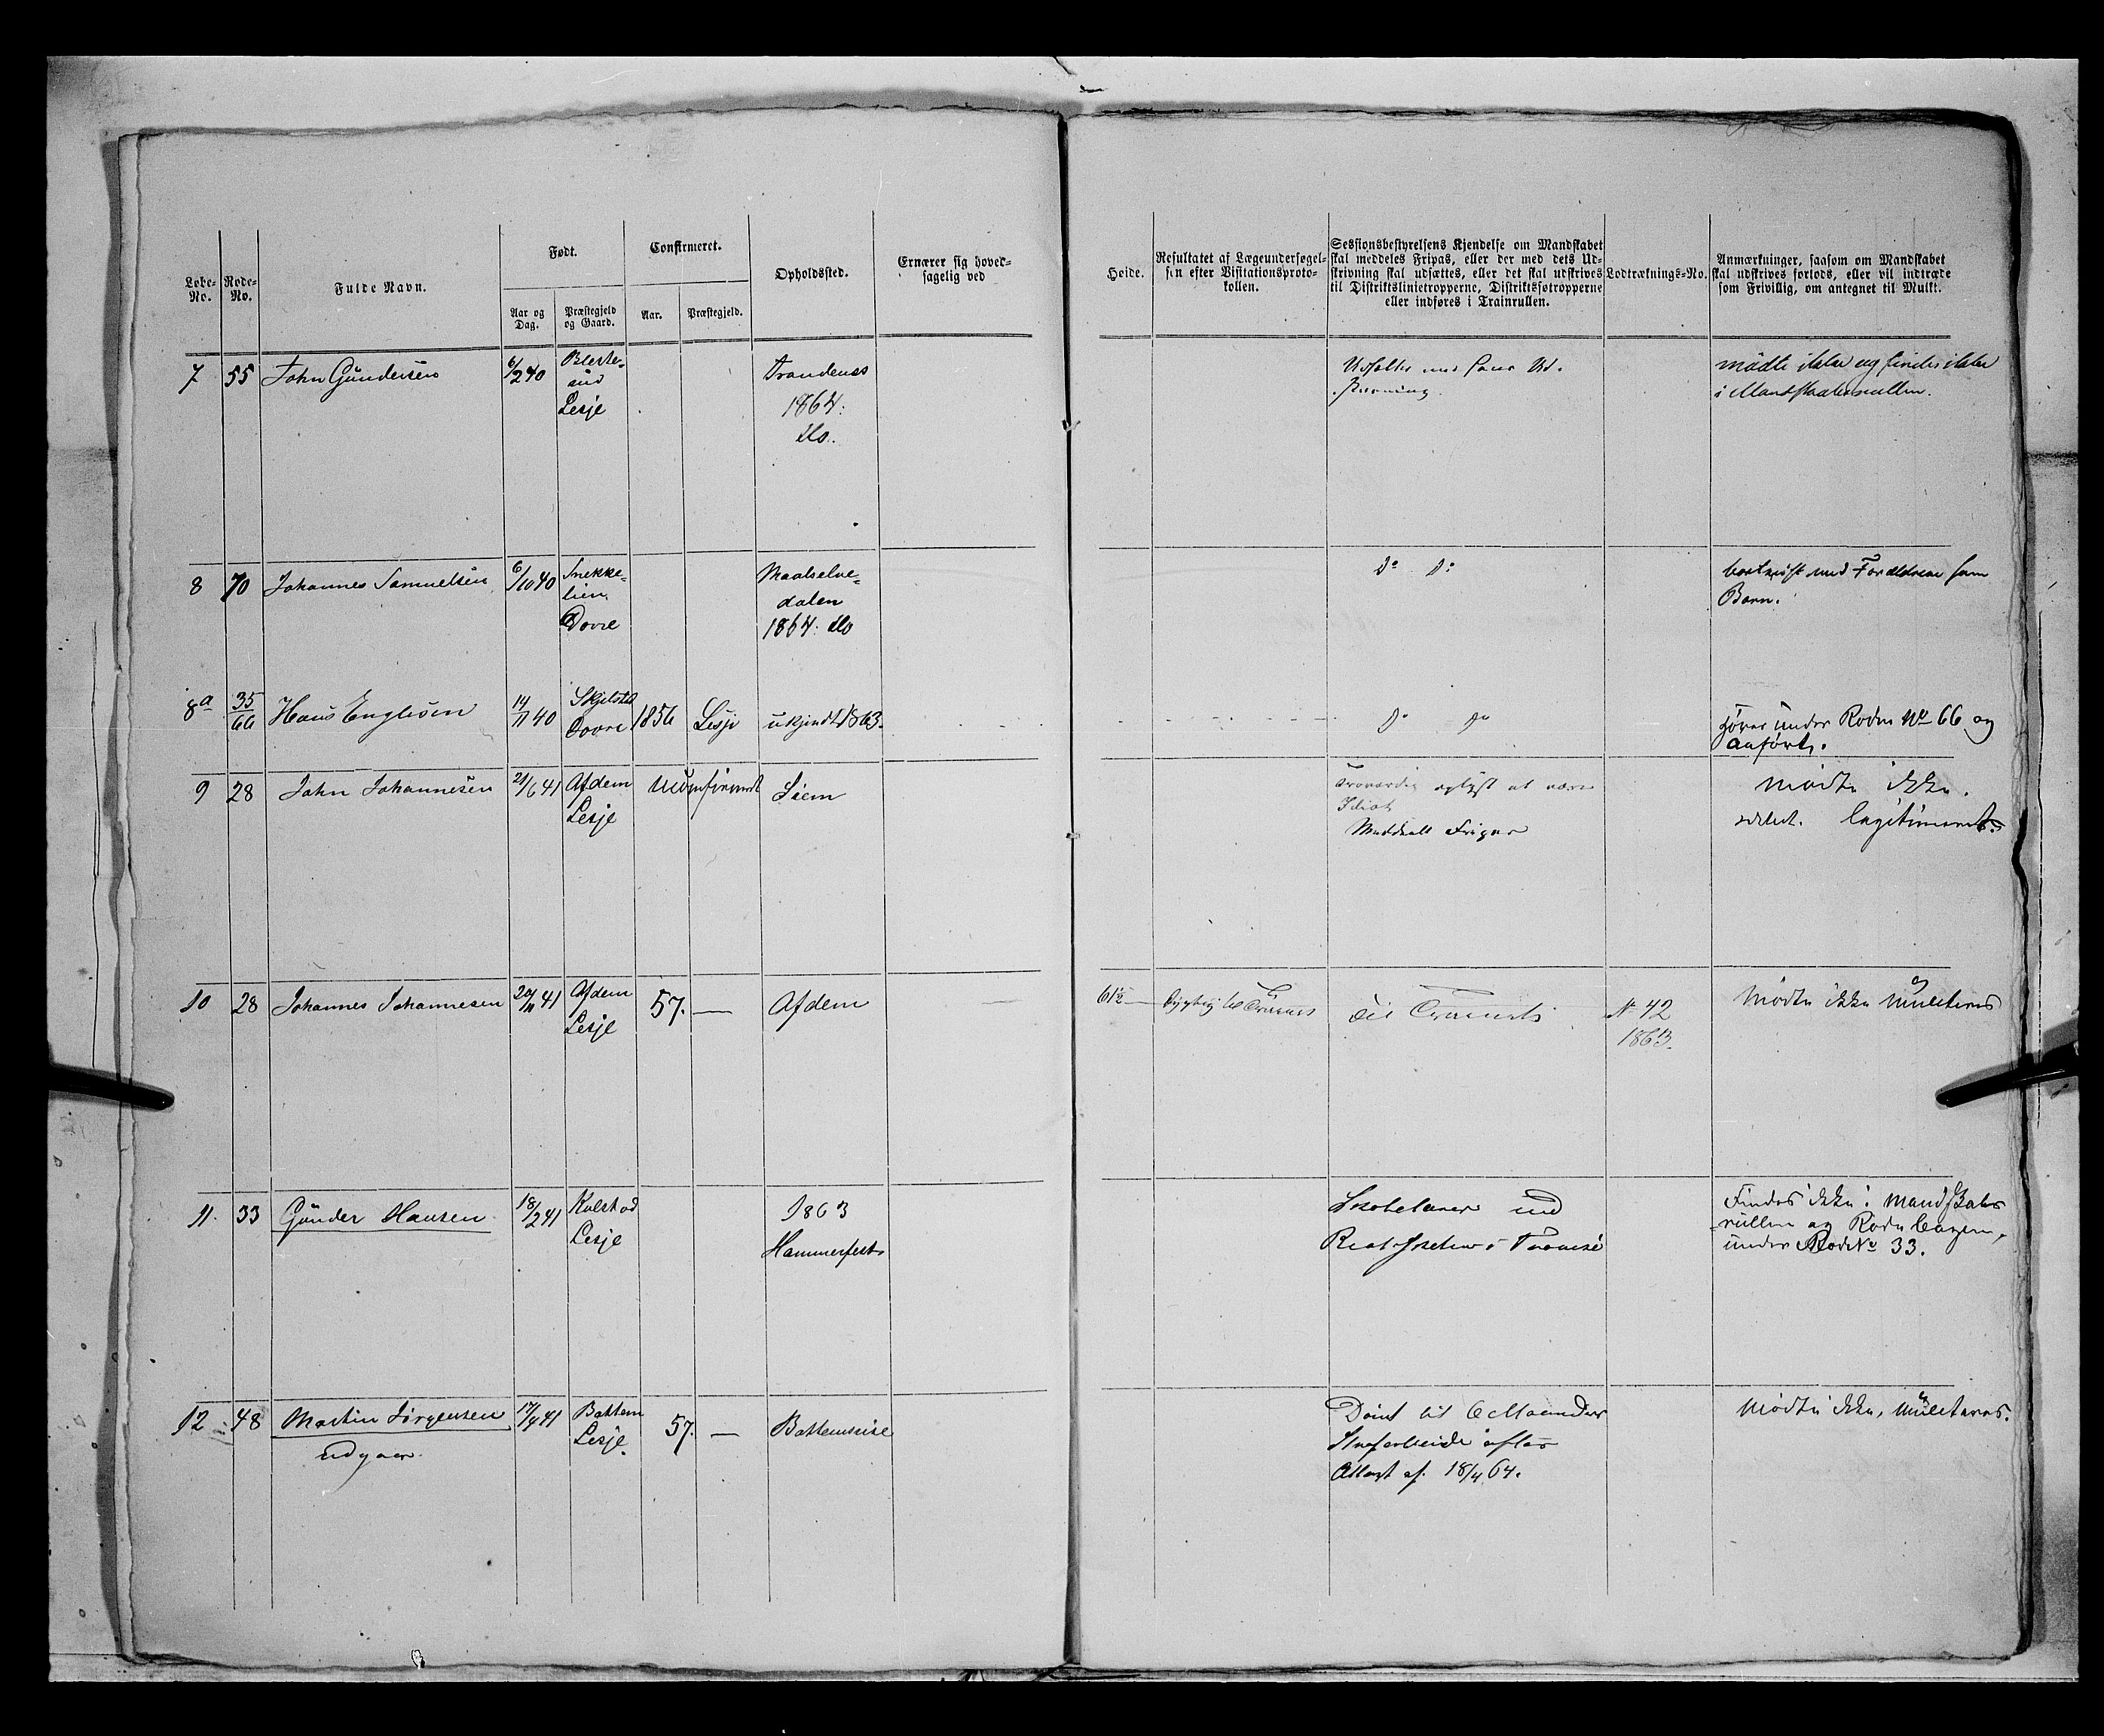 Løbe-
No.
Rode-
No.
Fulde Navn.
Født.
Aar og
Dag.
Præstegjeld
og Gaard.
Confirmeret.
Aar.
Præstegjeld.
Opholdssted.
Ernærer sig hoved-
sagelig ved
Høide.
Resultatet af Lægeundersøgel-
sen efter Visitationsproto-
kollen.
Sessionsbestyrelsens Kjendelse om Mandskabet
skal meddeles Fripas, eller der med dets Ud-
skrivning skal udsættes, eller det skal udskrives
til Distriktslinietropperne, Distriktsfotropperne
eller indføres i Trainrullen.
Lodtræknings-No.
Anmærkninger, saasom om Mandskabet
skal udskrives forlods, eller vil indtræde
som Frivillig, om antegnet til Mulkt.
7 55 John Gundersen 6/2 40
Lesje
Trondenæs
1864:
Do.
mødte ikke og findes ikke
i Mandskabsrullen.
8 70 Johannes Samuelsen 6/10 40
Snekke-
lien
Dovre
Maalselve-
dalen
1864: Do
Do Do
bortreist med Forældrene som
Barn.
8a 35/66 Hans Englesen 14/11 40
Skjelstad
Dovre
1856 Lesje ukjendt 1863.
Do Do
under Roden No 66 og
anført.
9 28 John Johannesen 21/6 41
Afdem
Lesje
Uconfirmeret
oplyst at være
Idiot
Meddeelt Fripas
Mødte ikke.
legitimeret.
10 28 Johannes Johannesen 20/11 41
Afdem
Lesje
57. — Afdem
61½ Dygtig til Trainet
Til Trainet
No 42
1863.
Mødte ikke mulcteres
11. 33 Gunder Hansen 18/2 41
Kolstad
Lesje
1863
Hammerfest
ved
Tromsø
Findes ikke i Mandskabs
rullen og Rode
under Rode No 33.
12 48 Martin Jørgensen 17/4 41
udgaar
Bottem
Lesje.
57. —
Dømt til 6 Maaneders
Strafarbeide efter
Attest af 18/4 64.
Mødte ikke, mulcteres.